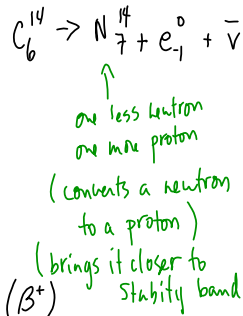 C₆¹⁴ → N₇¹⁴ + e₋₁⁰ + v̄
one less neutron
one more proton
(converts a neutron
to a proton)
(brings it closer to
Stabity band
(β⁺)